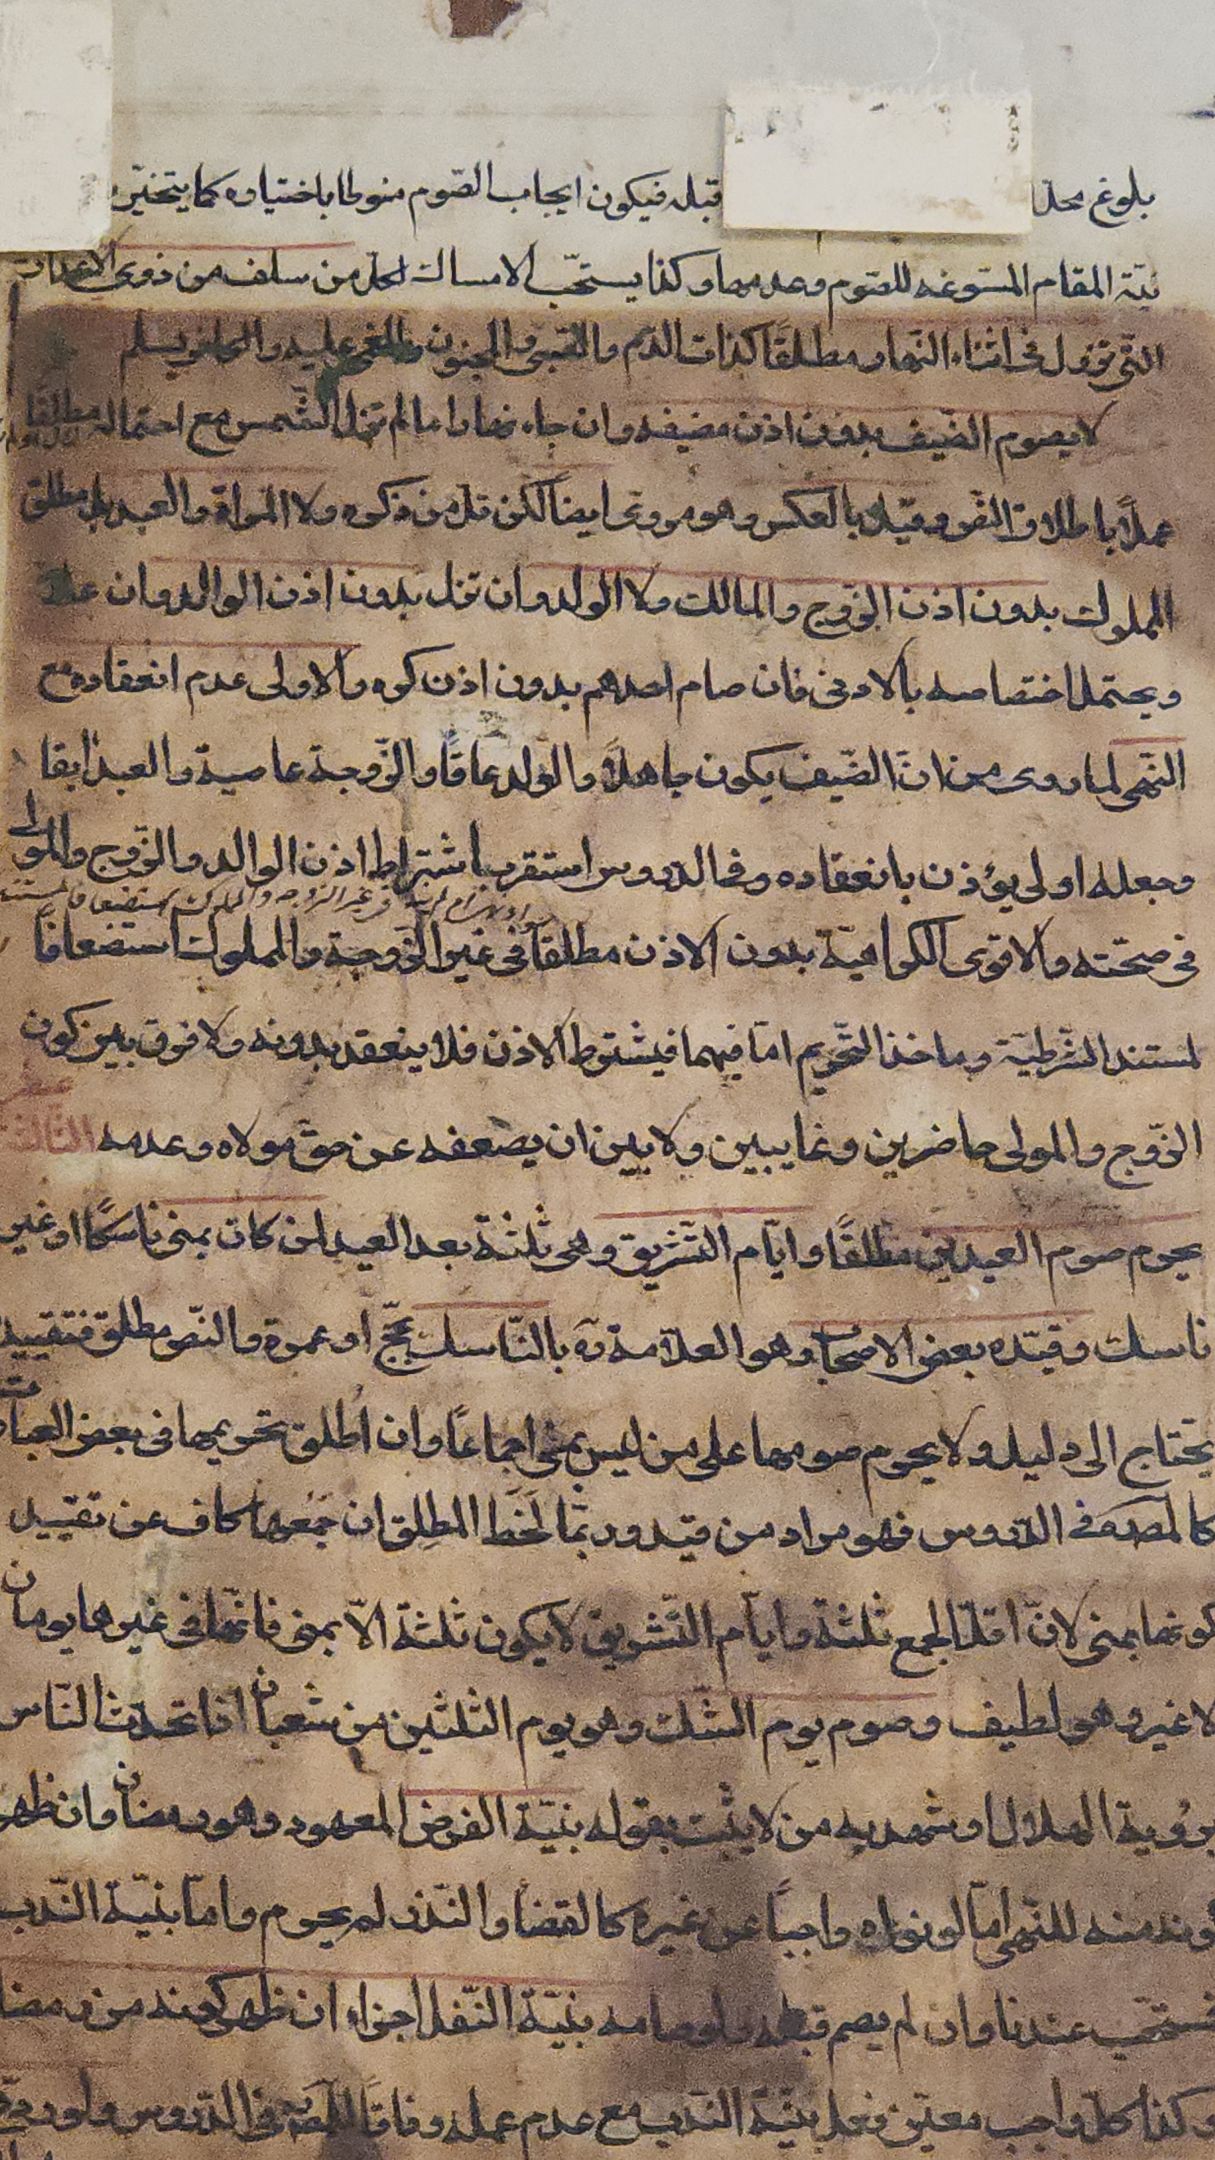 بلوغ محل قبله فيكون ايجاب الصّوم منوطا باختياره كما يتخيّر
نيّة المقام المسوّغه للصّوم وعدمها وكذا يستحبّ الامساك لكلّ من سلف من ذوى الاعذار
التّى تزول فى اثناء النّهار مطلقًا كذات الدّم والصّبى والمجنون والمغمى عليه والكافر يسلم
لا يصوم الضّيف بدون اذن مضيفه وان جاء نهارا ما لم تزل الشّمس مع احتماله مطلقًا
عملًا باطلاق النّص وقيل بالعكس وهو مروى ايضًا لكن قلّ من ذكره ولا المراة والعبد بل مطلق
المملوك بدون اذن الزّوج والمالك ولا الولد وان نزل بدون اذن الوالد وان علا
ويحتمل اختصاصه بالادنى فان صام احدهم بدون اذن كره والاولى عدم انعقاده مع
النّهى لما روى من انّ الضّيف يكون جاهلًا والولد عاقًّا والزّوجة عاصية والعبد ابقا
وجعله اولى يؤذن بانعقاده وفى الدروس استقرب اشتراط اذن الوالد والزّوج والمولى
فى صحّته والاقوى الكراهيّة بدون الاذن مطلقًا فى غير الزّوجة والمملوك استضعافًا
لمستند الشّرطيّة وماخذ التّحريم امّا فيهما فيشترط الاذن فلا ينعقد بدونه ولا فرق بين كون
الزّوج والمولى حاضرين وغايبين ولا بين ان يضعفه عن حقّ مولاه وعدمه الثالثة عشر
يحرم صوم العيدين مطلقًا وايّام التّشريق وهى ثلثة بعد العيد لمن كان بمنى ناسكًا او غير
ناسك وقيّده بعض الاصحاب وهو العلّامة ره بالنّاسك بحجّ او عمرة والنّص مطلق فتقييده
يحتاج الى دليل ولا يحرم صومها على من ليس بمنى اجماعًا وان اُطلق تحريمها فى بعض العبارات
كالمصه فى الدّروس فهو مراد من قيّد وربّما لَحَظَ المطلِق ان جَمْعها كاف عن تقييد
كونها بمنى لانّ اقلّ الجمع ثلثة وايّام التّشريق لا يكون ثلثة الّا بمنى فانّها فى غيرها يومان
لا غير وهو لطيف وصوم يوم الشّك وهو يوم الثلثين من شعبان اذا تحدّث النّاس
برُوية الهلال او شهد به من لا يثبت بقوله بنيّة الفرض المعهود وهو رمضان وان ظهر
كونه منه للنّهى امّا لو نواه واجبًا عن غيره كالقضاء والنّذر لم يحرم وامّا بنيّة النّدب
فمستحب عندنا وان لم يصم قبله ولو صامه بنيّة النّفل اجزاء ان ظهر كونه من رمضان
وكذا كلّ واجب معيّن فعل بنيّة النّدب مع عدم عمله وفاقًا للمصه فى الدّروس ولو ردّد